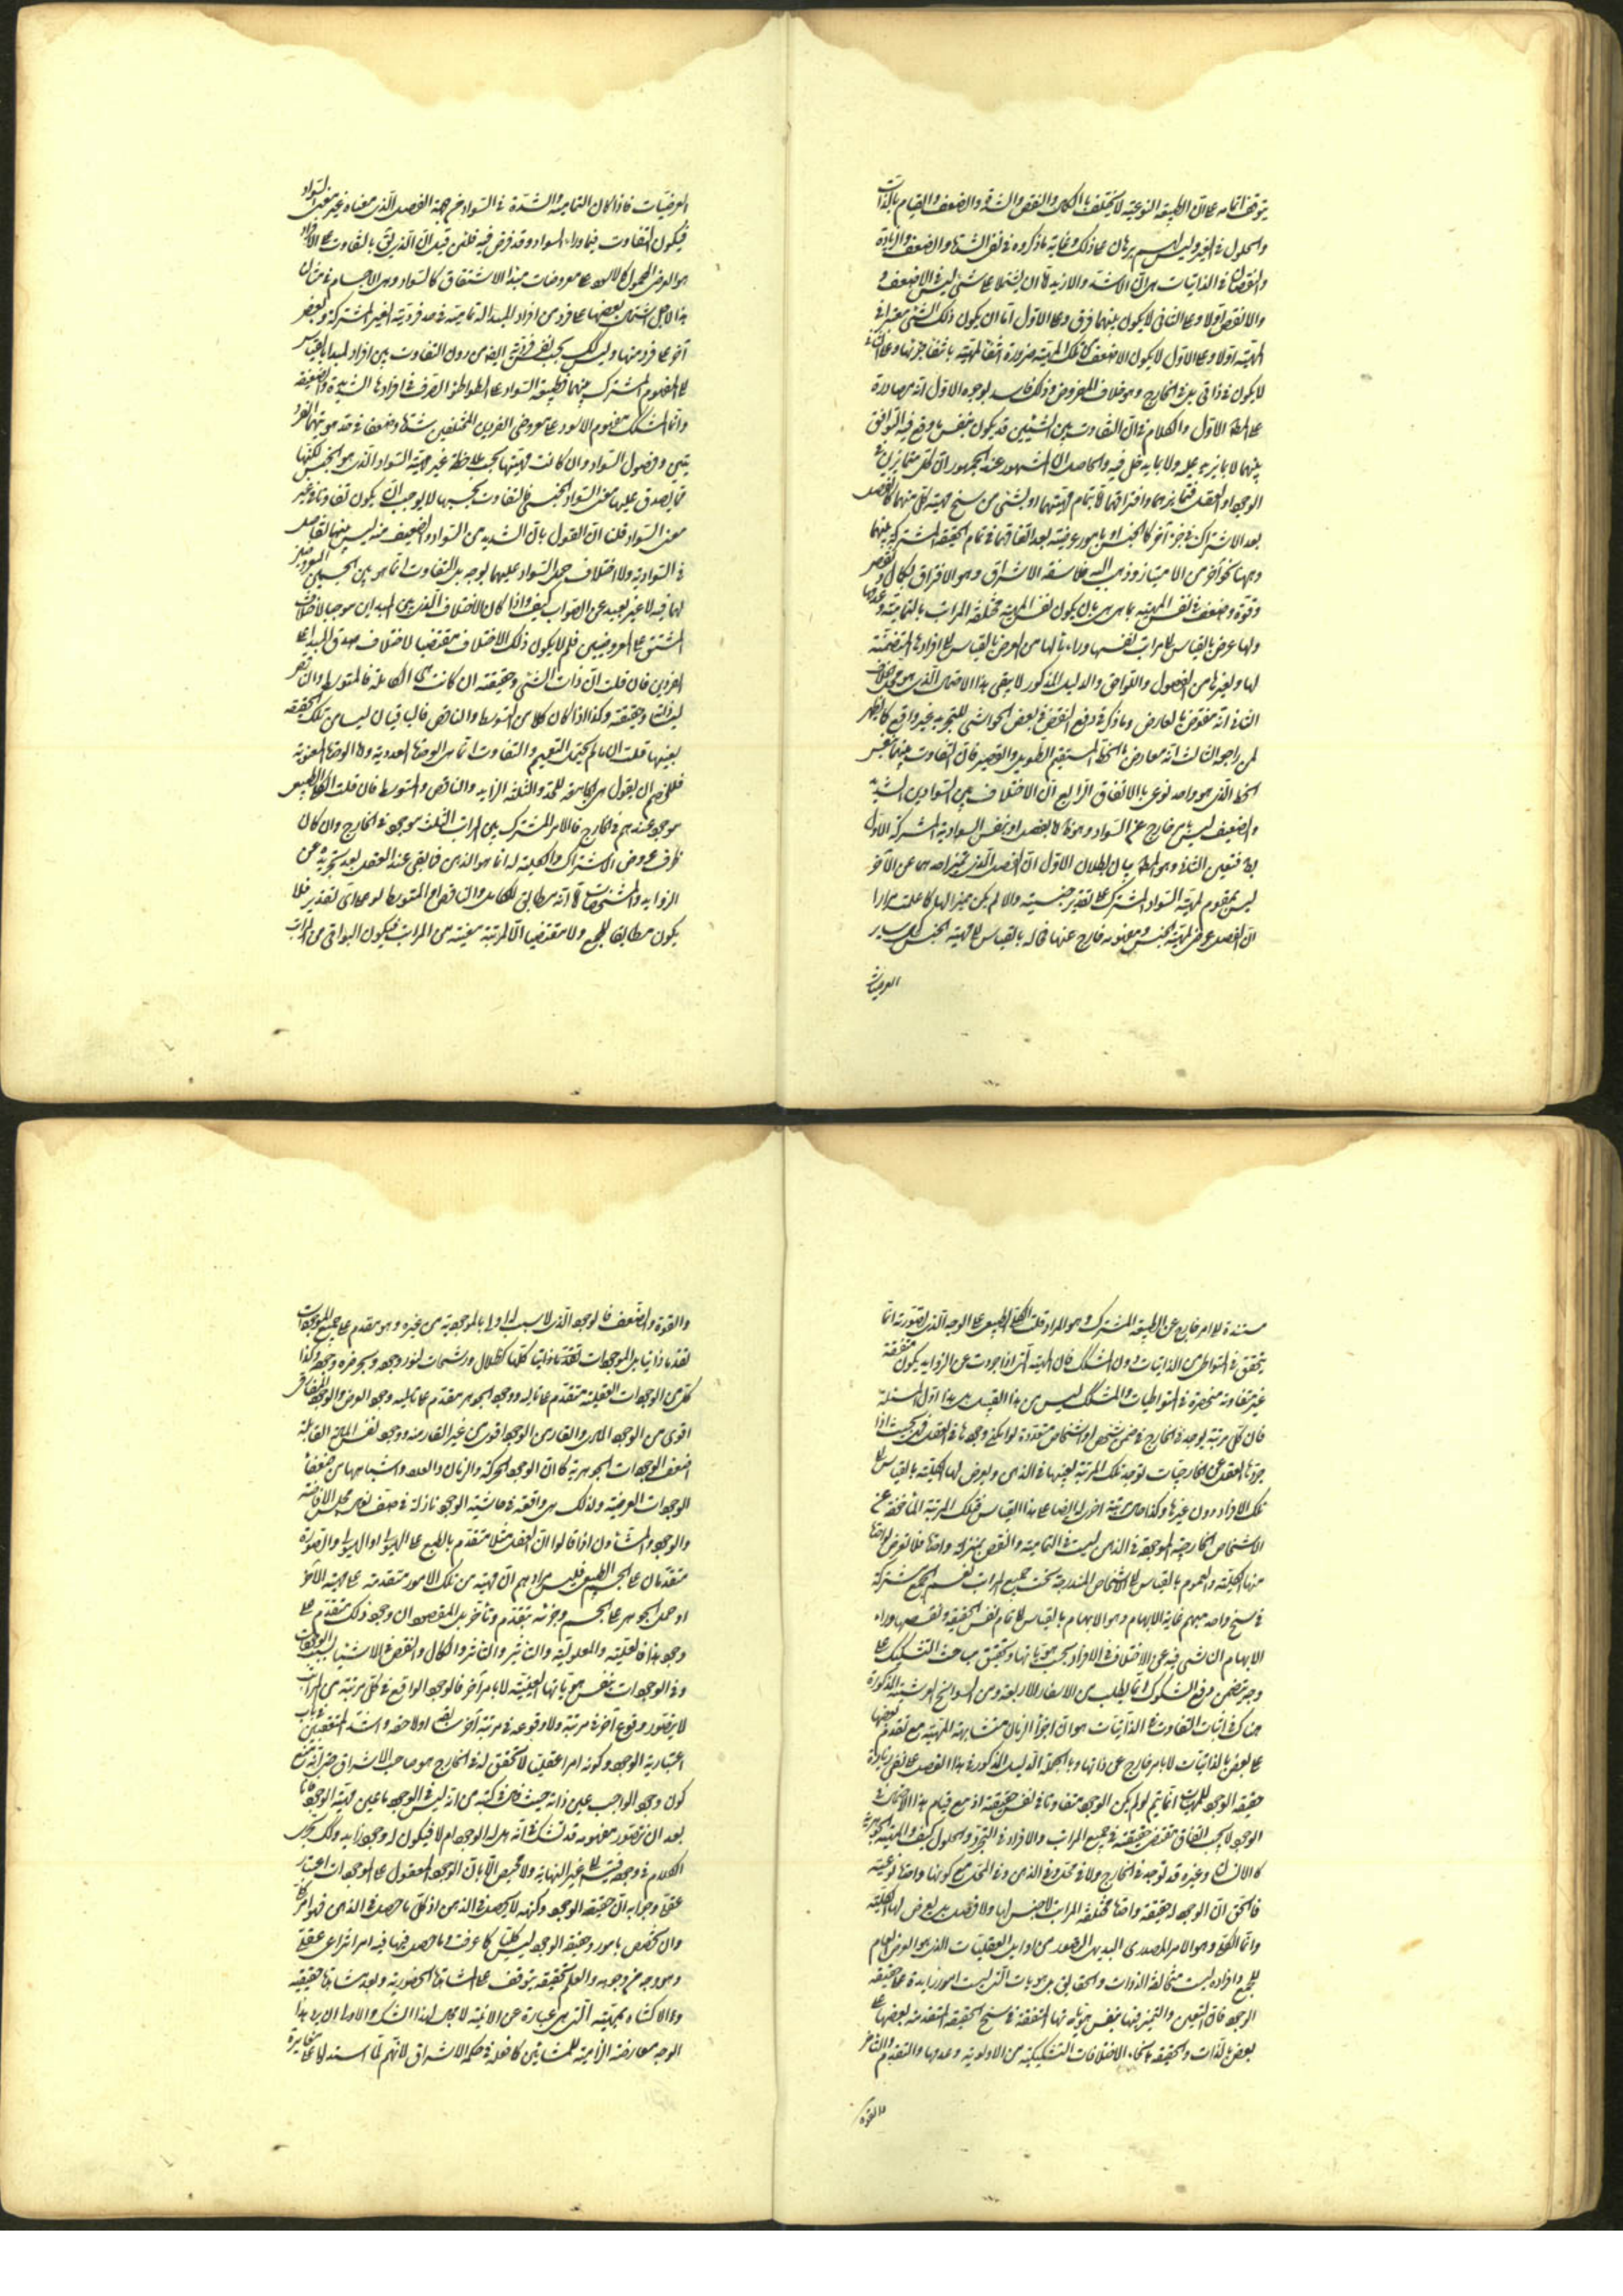 يتوقف اتمامه على ان الطبيعة النوعية لا يختلف بالكمال والنقص والشدة والضعف والقيام بالذات
والحلول في الغير وليس لهم برهان على ذلك وغاية ما ذكروه في نفى الشدة والضعف والزيادة
والنقصان في الذاتيات هو ان الاشد والازيد اما ان يشتملا على شئ ليس في الاضعف و
والانقص اولا وعلى الثانى لا يكون بينهما فرق وعلى الاول اما ان يكون ذلك الشئ معتبرا في
المهية اولا وعلى الاول لا يكون الاضعف من تلك المهية ضرورة انتفاء المهية بانتفاء جزئها وعلى الثانى
لا يكون في ذاتى بل في الخارج وهو خلاف المفروض وذلك فاسد لوجوه الاول انه مصادرة
على المط الاول والكلام في ان التفاوت بين الشيئين قد يكون بنفس ما وقع فيه التوافق
بينهما لا بما يزيد عليه ولا بما يدخل فيه والحاصل ان المشهور عند الجمهور ان كل متمايزين في
الوجود او العقل فتمايزهما وافتراقهما اما بتمام مهيتهما او بشئ من سنخ مهية كل منهما كالفصل
بعد الاشتراك في جزء آخر كالجنس او بامور عرضية بعد اتفاقهما في تمام الحقيقة المشتركة بينهما
وههنا نحو آخر من الامتياز وذهب اليه فلاسفة الاشراق وهو الافتراق بكمال ونقص
وقوة وضعف في نفس المهية بما هى هى بان يكون نفس المهية مختلفة المراتب بالتمامية وعدمها
ولها عرض بالقياس الى مراتب نفسها وراء ما لها من العرض بالقياس الى افرادها المتضمنة
لها ولغيرها من الفصول واللواحق والدليل المذكور لا ينفى هذا الاحتمال الذى هو محل الخلاف
الثانى انه منقوض بالعارض وما ذكر في دفع النقض في بعض الحواشى للتجريد غير واقع كما يظهر
لمن راجعه الثالث انه معارض بالخط المستقيم الطويل والقصير فان التفاوت بينهما بنفس
الخط الذى هو واحد نوعى بالاتفاق الرابع ان الاختلاف بين السوادين الشديد
والضعيف ليس بشئ خارج عن السواد وهو ظ لا بفصل او بنفس السوادية المشتركة الاول
بط فتعين الثانى وهو المط بيان بطلان الاول ان الفصل الذى يميز احدهما عن الآخر
ليس بمقوم لمهية السواد المشترك على تقدير جنسيته والا لم يكن مميزا لها كما علمت مرارا
ان الفصل عرض لمهية الجنس ومفهومه خارج عنها فحاله بالقياس الى مهية الجنس كحال ساير
العرضيات
العرضيات فاذا كان التمامية والشدة في السواد من جهة الفصل الذى معناه غير معنى السواد
فيكون التفاوت فيما وراء السواد وقد فرض فيه فلئن قيل ان الذى يق بالتفاوت على الافراد
هو العرضى المحمول كالاسود على معروضات مبدء الاشتقاق كالسواد وهى الاجسام في مثال
هذا لاجل اشتمال بعضها على فرد من افراد المبدء له تمامية في حد فرديته الغير المشتركة وبعض
آخر على فرد منها وليس كذلك بحسب نفس فرديته ايضا من دون التفاوت بين افراد المبدء بالقياس
الى المفهوم المشترك بينهما فطبيعة السواد على التواطؤ الصرف في افرادها الشديدة والضعيفة
وانما المشكك مفهوم الاسود على معروضى الفردين المختلفين شدة وضعفا في حد هويتهما الفرد
يتين وفصول السواد وان كانت مهيتها بحسب ملاحظة غير مهية السواد الذى هو الجنس لكنها
مما يصدق عليها معنى السواد الجنسى فالتفاوت بحسبها لا يوجب ان يكون تفاوتا في غير
معنى السواد قلنا ان القول بان الشديد من السواد والضعيف منه ليس بينهما تفاضل
في السوادية ولا اختلاف حمل السواد عليهما بوجه بل التفاوت انما هو بين الجسمين المعروضين
لهما فيه لا غير بعيد عن الصواب كيف واذا كان الاختلاف الذى بين المبدأين موجبا لاختلاف
المشتق على المعروضين فلم لا يكون ذلك الاختلاف مقتضيا لاختلاف صدق المبدء على
الفردين فان قلت ان ذات الشئ وحقيقته ان كانت هى الكاملة فالمتوسط والناقص
ليسا ذاتا وحقيقة وكذا اذا كان كلا من المتوسط والناقص فالباقيان ليسا من تلك الحقيقة
بعينها قلت ان ما لم يحتمل التعميم والتفاوت انما هى الوحدة العددية واما الوحدة المعنوية
فللخصم ان يقول هى الجامعة للحدود الثلثة الزايد والناقص والمتوسط فان قلت الكلى الطبيعى
موجود عندهم في الخارج فالامر المشترك بين المراتب الثلث موجود في الخارج وان كان
ظرف عروض الاشتراك والكلية له انما هو الذهن فما بقى عند العقل بعد تجريده عن
الزوايد والمشخصات فاما انه مطابق للكامل والناقص او المتوسط لو على اى تقدير فلا
يكون مطابقا للجميع ولا مقتضيا الا لمرتبة معينة من المراتب فيكون البواقى من المراتب
مستندة الى امر خارج عن الطبيعة المشتركة وهو المراد قلت الكلى الطبيعى على الوجه الذى تصورته انما
يتحقق في المتواطى من الذاتيات دون المشكك فان المهية التى اذا جردت عن الزوايد يكون متفقة
غير متفاوتة منحصرة في المتواطيات والمشكك ليس من هذا القبيل بل هذا اول المسئلة
فان كل مرتبة يوجد في الخارج في ضمن شخص او اشخاص متعددة لو امكن وجودها في العقل فهى بحيث اذا
جردها العقل عن الخارجيات توجد تلك المرتبة بعينها في الذهن ويعرض لها الكلية بالقياس الى
تلك الافراد دون غيرها وكذا حال مرتبة اخرى له ايضا على هذا القياس فتلك المرتبة الماخوذة عن
الاشخاص الخارجية الموجودة في الذهن ليست في التمامية والنقص بمنزلة واحدة فلا تعرض لواحدة
منها الكلية والعموم بالقياس الى الاشخاص المندرجة تحت جميع المراتب نعم الجميع مشتركة
في سنخ واحد مبهم غاية الابهام وهو الابهام بالقياس الى تمام نفس الحقيقة ونقصها وراء
الابهام الناشى فيه عن الاختلاف في الافراد بحسب هوياتها وتحقيق مباحث التشكيك على
وجه يتضمن دفع الشكوك انما يطلب من الاسفار الاربعة ومن السوانح العرشية المذكورة
هناك في اثبات التفاوت في الذاتيات هو ان اجزاء الزمان متشابهة المهية مع تقدم بعضها
على بعض بالذاتيات لا بامر خارج عن ذاتها وبالجملة الدليل المذكور في هذا الفصل على نفى زيادة
حقيقة الوجود للمهيات انما يتم لو لم يكن الوجود متفاوتا في نفس حقيقته اذ مع قيام هذا الاحتمال في
الوجود لا يجب اتفاق مقتضى حقيقته في جميع المراتب والافراد في التجرد والحلول كيف والمهية الجوهرية
كالانسان وغيره قد توجد في الخارج ولا في محل وفي الذهن وفي المحل مع كونها واحدة نوعية
فالحق ان الوجود له حقيقة واحدة مختلفة المراتب لا جنس لها ولا فصل بل يعرض لها الكلية
وانما الكلى هو الامر المصدرى البديهى التصور من اوايل العقليات الذى هو العرض العام
للجميع وافراده ليست متخالفة الذوات والحقايق بل هويات التى ليست امور زايدة على حقيقة
الوجود فان التعين والتميز فيها بنفس هوياتها المتفقة في سنخ الحقيقة المتقدمة بعضها على
بعض بالذات والحقيقة بانحاء الاختلافات التشكيكية من الاولوية وعدمها والتقدم والتاخر
والقوة
والقوة والضعف فالوجود الذى لا سبب له اولى بالموجودية من غيره وهو متقدم على جميع الموجودات
تقدما ذاتيا بل الموجودات بعده باذيالها كلها كظلال ورشحات لنور وجهه وبحر فيض وجوده وكذا
كل من الوجودات العقلية متقدم على تاليه ووجود الجوهر متقدم على تاليه وجود العرض والوجود المفارقى
اقوى من الوجود المادى والقار من الوجود اقوى من غير القار منه ووجود نفس المادة القابلة
اضعف الوجودات الجوهرية كما ان الوجود الحركة والزمان والعدد واشباهها من ضعفاء
الوجودات العرضية ولذلك هى واقعة في حاشية الوجود نازلة في صف نعال محفل الافاضة
والوجود والمشاؤن اذا قالوا ان العقل مثلا متقدم بالطبع على الهيولى او الهيولى والصورة
متقدمان على الجسم الطبيعى فليس مرادهم ان مهية من تلك الامور متقدمة على مهية الآخر
او حمل الجوهر على الجسم وجزئه بتقدم وتاخر بل المقصود ان وجود ذلك متقدم على
وجود هذا فالعلية والمعلولية والتاثير والتاثر والكمال والنقص في الاشياء بسبب الوجودات
وفي الوجودات بنفس هوياتها العينية لا بامر آخر فالوجود الواقع في كل مرتبة من المراتب
لا يتصور وقوع آخر في مرتبة ولا وقوعه في مرتبة آخر سابقة او لاحقة واشد المتعصبين في باب
اعتبارية الوجود وكونه امرا عقليا لا تحقق له في الخارج هو صاحب الاشراق حتى انه منع
كون وجود الواجب عين ذاته حيث قال في كتبه من انه ليس في الوجود ما عين مهية الوجود فانا
بعد ان نتصور مفهومه قد نشك في انه هل له الوجود ام لا فيكون له وجود زايد وكذلك يجرى
الكلام في وجوده ويتسلسل الى غير النهاية ولا محيص الا بان الوجود المقول على الموجودات اعتبار
عقلى وجوابه ان حقيقة الوجود وكنهه لا يحصل في الذهن اذ كل ما حصل في الذهن فهو امر كلى
وان تخصص بامور وحقيقة الوجود ليس كليا كما عرفت وما حصل فيها فيه امر انتزاعى عقلى
وهو وجه من وجوهه والعلم بحقيقته يتوقف على المشاهدة الحضورية وبعد مشاهدة حقيقته
والاكتناه بمهيته التى هى عبارة عن الانية لا يبقى لهذا الشك والاولى ان يرد هذا
الوجه معارضة الزامية للمشائين كما فعله في حكمة الاشراق لانهم لما استدلوا على مغايرة